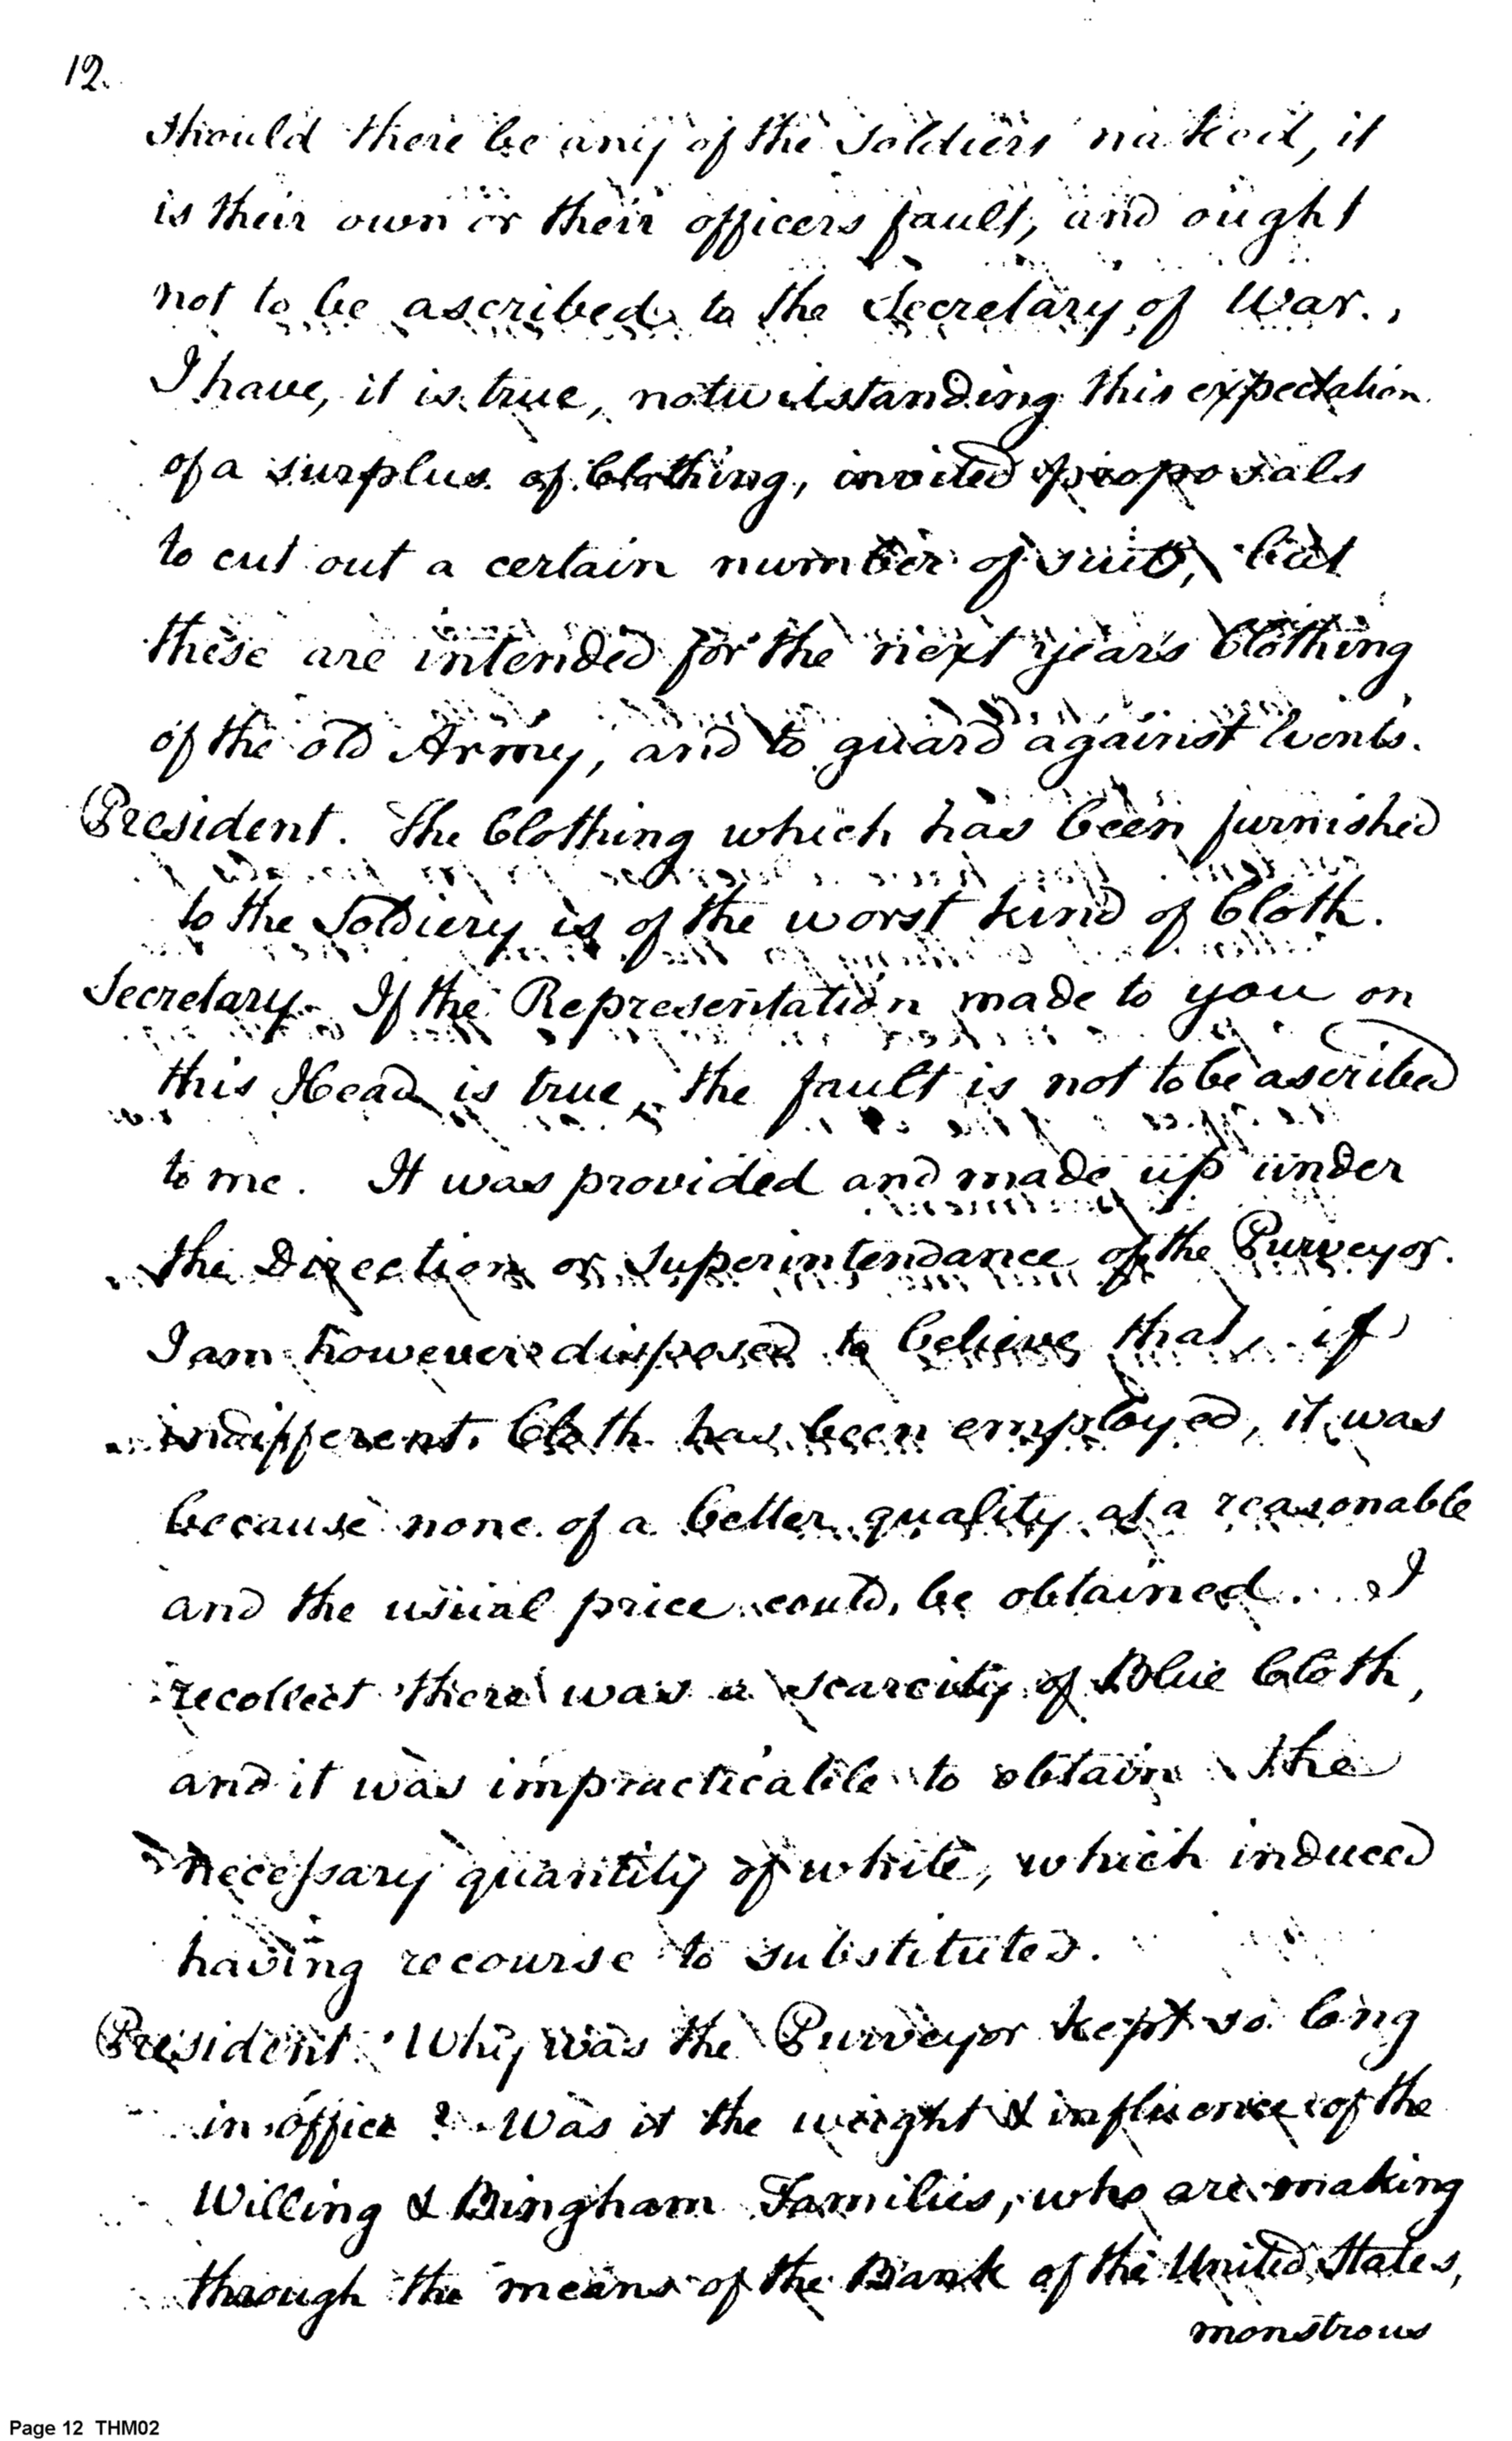 12.
should there be any of the Soldiers naked, it
is their own or their officers fault, and ought
not to be ascribed to the Secretary of War.
I have, it is true, notwitstanding this expectation
of a surplus of Clothing, invited proposals
to cut out a certain number of suits, but
these are intended for the next years Clothing
of the old Army, and to guard against Events.
President. The Clothing which has been furnished
to the Soldiery is of the worst kind of Cloth.
Secretary. If the Representation made to you on
this Head is true, the fault is not to be ascribed
to me. It was provided and made up under
the Direction or Superintendance of the Purveyor.
I am however disposed to believe that, if
indifferent Cloth has been employed, it was
because none of a better quality at a reasonable
and the usual price could, be obtained. I
recollect there was a scarcity of Blue Cloth,
and it was impracticable to obtain the
necessary quantity of white, which induced
having recourse to substitutes.
President. Why was the Purveyor kept so long
in office? Was it the weight & influence of the
Willing & Bingham Families, who are making
through the means of the Bank of the United States,
monstrous
Page 12 THM02